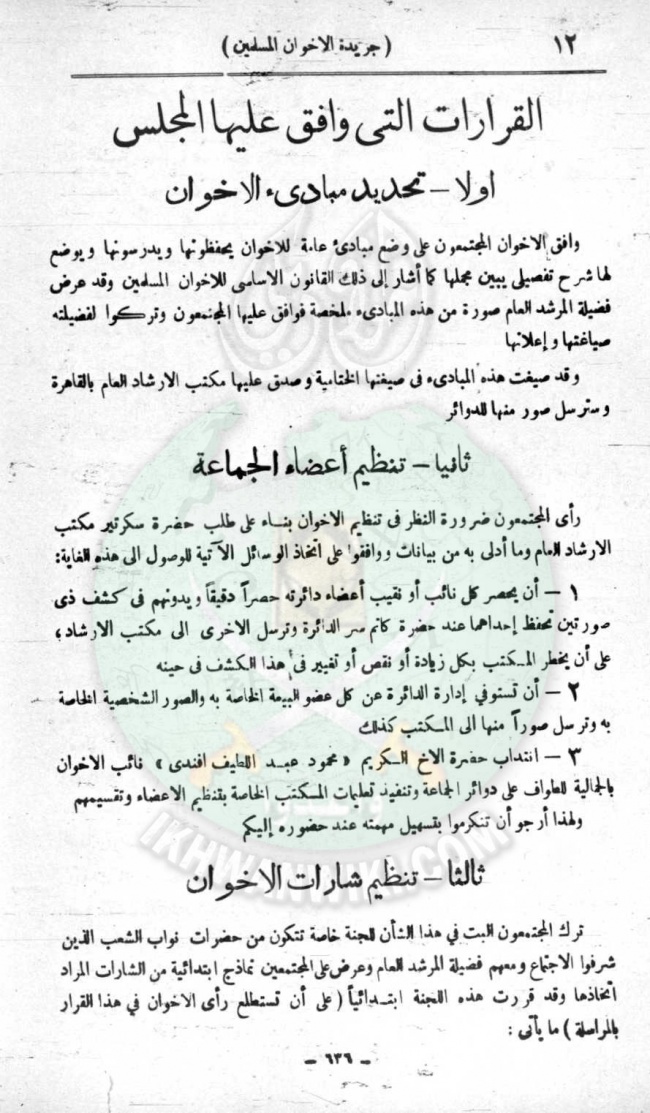 ١٢
( جريدة الاخوان المسلمين )
القرارات التى وافق عليها المجلس
اولا – تحديد مبادىء الاخوان
وافق الاخوان المجتمعون على وضع مبادئ عامة للاخوان يحفظونها ويدرسونها ويوضع
لها شرح تفصيلى يبين مجملها كما أشار إلى ذلك القانون الاساسى للاخوان المسلمين وقد عرض
فضيلة المرشد العام صورة من هذه المبادىء ملخصة فوافق عليها المجتمعون وتركوا لفضيلته
صياغتها وإعلانها
وقد صيغت هذه المبادىء فى صيغتها الختامية وصدق عليها مكتب الارشاد العام بالقاهرة
وسترسل صور منها للدوائر
ثانيا – تنظيم أعضاء الجماعة
رأى المجتمعون ضرورة النظر فى تنظيم الاخوان بناء على طلب حضرة سكرتير مكتب
الارشاد العام وما أدلى به من بيانات ووافقوا على اتخاذ الوسائل الآتية للوصول الى هذه الغاية:
١ – أن يحصر كل نائب أو نقيب أعضاء دائرته حصراً دقيقاً ويدونهم فى كشف ذى
صورتين تحفظ إحداهما عند حضرة كاتم سر الدائرة وترسل الاخرى الى مكتب الارشاد؛
على أن يخطر المكتب بكل زيادة أو نقص أو تغيير فى هذا الكشف فى حينه
٢ – أن تستوفي إدارة الدائرة عن كل عضو البيعة الخاصة به والصور الشخصية الخاصة
به وترسل صوراً منها الى المكتب كذلك
٣ – انتداب حضرة الاخ الكريم «محمود عبد اللطيف افندى» نائب الاخوان
بالجمالية للطواف على دوائر الجماعة وتنفيذ تعليمات المكتب الخاصة بتنظيم الاعضاء وتقسيمهم
ولهذا أرجو أن تتكرموا بتسهيل مهمته عند حضوره إليكم
ثالثا – تنظيم شارات الاخوان
ترك المجتمعون البت فى هذا الشأن للجنة خاصة تتكون من حضرات نواب الشعب الذين
شرفوا الاجتماع ومعهم فضيلة المرشد العام وعرض على المجتمعين نماذج ابتدائية من الشارات المراد
اتخاذها وقد قررت هذه اللجنة ابتدائياً (على أن تستطلع رأى الاخوان في هذا القرار
بالمراسلة) ما يأتى:
– ٦٣٦ –
IKHWANWIKI.COM